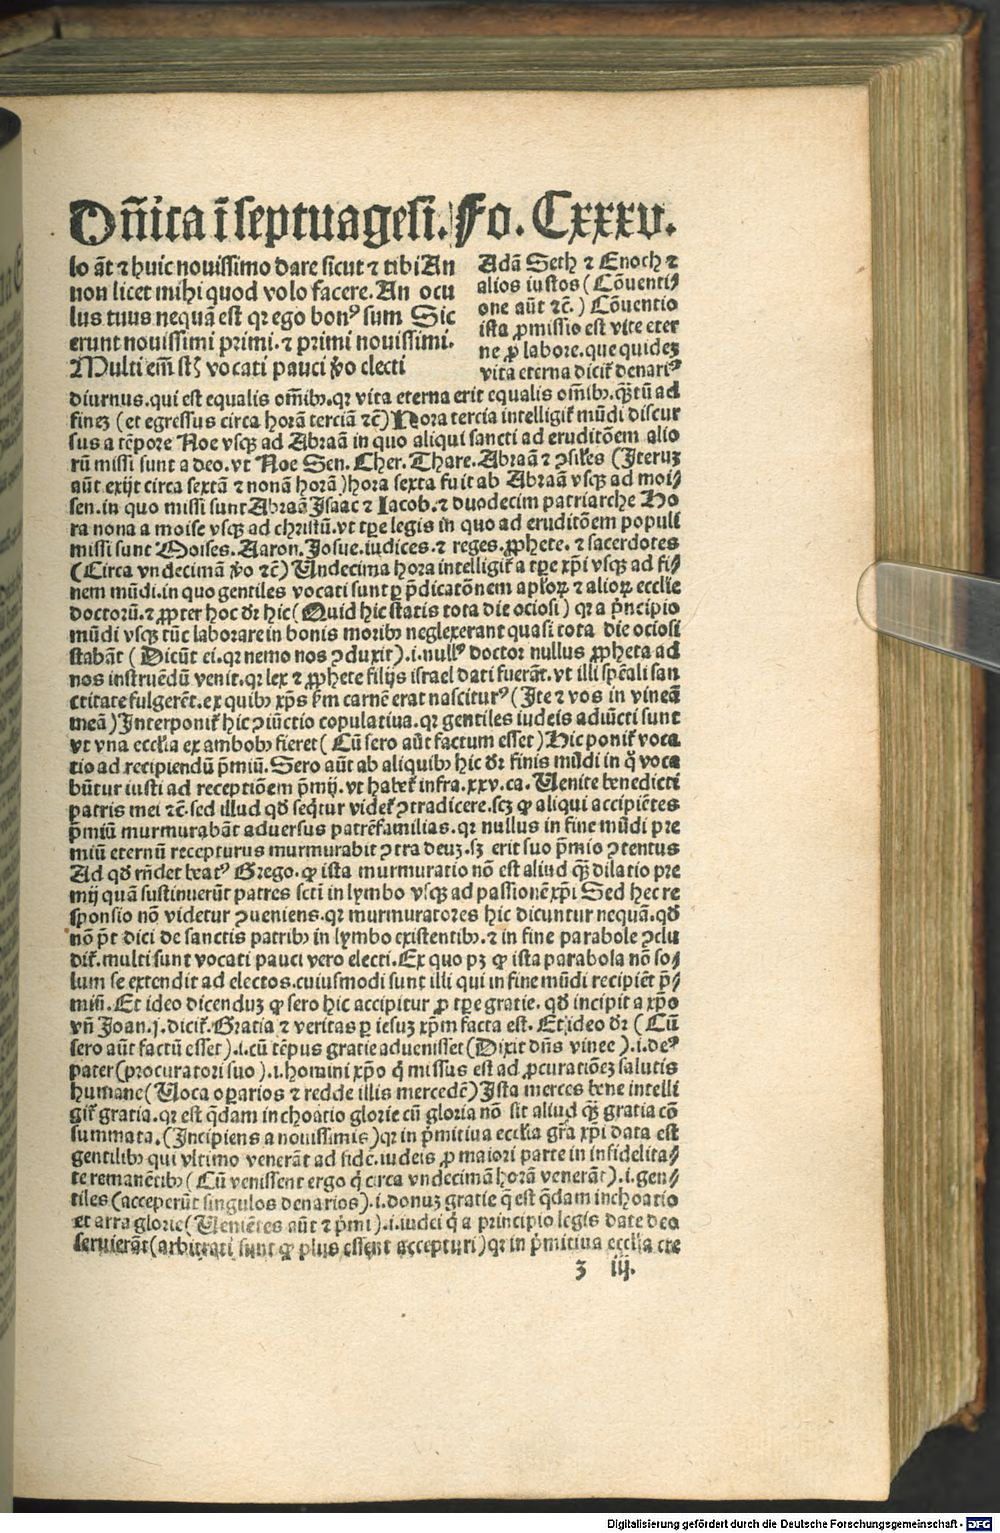 Dñica ī septuagesi. Fo. Cxxxv.
lo āt ⁊ huic nouissimo dare sicut ⁊ tibi An
non licet mihi quod volo facere. An ocu
lus tuus nequā est qꝛ ego bonꝰ sum Sic
erunt nouissimi primi. ⁊ primi nouissimi.
Multi em̄ st̄ vocati pauci v̊o electi
Adā Seth ⁊ Enoch ⁊
alios iustos (Cōuenti⸗
one aūt ⁊c̄.) Cōuentio
ista ꝓmissio est vite eter
ne ꝓ labore. que quidez
vita eterna dicit᷑ denariꝰ
diurnus. qui est equalis om̄ibꝫ. qꝛ vita eterna erit equalis om̄ibꝫ. qꝫtū ad
finez (et egressus circa horā terciā ⁊c̄) Hora tercia intelligit᷑ mūdi discur
sus a tēpore Noe vsqꝫ ad Abraā in quo aliqui sancti ad eruditōem alio
rū missi sunt a deo. vt Noe Sen. Eber. Thare. Abraā ⁊ ꝯsiles (Iteruz
aūt exijt circa sextā ⁊ nonā horā) hora sexta fuit ab Abraā vsqꝫ ad moi⸗
sen. in quo missi sunt Abraā Isaac ⁊ Iacob. ⁊ duodecim patriarche Ho
ra nona a moise vsqꝫ ad christū. vt tꝑe legis in quo ad eruditōem populi
missi sunt Moises. Aaron. Iosue. iudices. ⁊ reges. ꝓphete. ⁊ sacerdotes
(Circa vndecimā v̊o ⁊c̄) Undecima hora intelligit᷑ a tꝑe xp̄i vsqꝫ ad fi⸗
nem mūdi. in quo gentiles vocati sunt ꝑ p̄dicatōnem aploꝝ ⁊ alioꝝ ecclie
doctorū. ⁊ ꝓpter hoc dꝛ hic (Quid hic statis tota die ociosi) qꝛ a p̄ncipio
mūdi vsqꝫ tūc laborare in bonis moribꝫ neglexerant quasi tota die ociosi
stabāt (Dicūt ei. qꝛ nemo nos ꝯduxit). i. nullꝰ doctor nullus ꝓpheta ad
nos instruēdū venit. qꝛ lex ⁊ ꝓphete filijs israel dati fuerāt. vt illi sp̄eali san
ctitate fulgerēt. ex quibꝫ xp̄s k̄m carnē erat nasciturꝰ (Ite ⁊ vos in vineā
meā) Interponit᷑ hic ꝯiūctio copulatiua. qꝛ gentiles iudeis adiūcti sunt
vt vna ecclia ex ambobꝫ fieret (Cū sero aūt factum esset) Hic ponit᷑ voca
tio ad recipiendū p̄miū. Sero aūt ab aliquibꝫ hic dꝛ finis mūdi in q̊ voca
būtur iusti ad receptiōem p̄mij. vt habet᷑ infra. xxv. ca. Uenite benedicti
patris mei ⁊c̄. sed illud qd̄ seq̄tur videt᷑ ꝯtradicere. scz ꝙ aliqui accipiētes
p̄miū murmurabāt aduersus patrēfamilias. qꝛ nullus in fine mūdi pre
miū eternū recepturus murmurabit ꝯtra deuz. sz erit suo p̄mio ꝯtentus
Ad qd̄ rn̄det beatꝰ Grego. ꝙ ista murmuratio nō est aliud qꝫ dilatio pre
mij quā sustinuerūt patres scti in lymbo vsqꝫ ad passionē xp̄i Sed hec re
sponsio nō videtur ꝯueniens. qꝛ murmuratores hic dicuntur nequā. qd̄
nō p̄t dici de sanctis patribꝫ in lymbo existentibꝫ. ⁊ in fine parabole ꝯclu
dit᷑. multi sunt vocati pauci vero electi. Ex quo pz ꝙ ista parabola nō so⸗
lum se extendit ad electos. cuiusmodi sunt illi qui in fine mūdi recipiēt p̄⸗
miū. Et ideo dicenduz ꝙ sero hic accipitur ꝓ tꝑe gratie. qd̄ incipit a xp̄o
vn̄ Joan. j. dicit᷑. Gratia ⁊ veritas ꝑ iesuz xp̄m facta est. Et ideo dꝛ (Cū
sero aūt factū esset). i. cū tēpus gratie aduenisset (Dixit dn̄s vinee). i. deꝰ
pater (procuratori suo). i. homini xp̄o q̇ missus est ad ꝓcuratiōez salutis
humane (Uoca oꝑarios ⁊ redde illis mercedē) Ista merces bene intelli
git᷑ gratia. qꝛ est q̄dam inchoatio glorie cū gloria nō sit aliud qꝫ gratia cō
summata. (Incipiens a nouissimis) qꝛ in p̄mitiua ecclia gr̄a xp̄i data est
gentilibꝫ qui vltimo venerāt ad fidē. iudeis ꝓ maiori parte in infidelita⸗
te remanētibꝫ (Cū venissent ergo q̇ circa vndecimā horā venerāt). i. gen⸗
tiles (acceperūt singulos denarios). i. donuz gratie q̄ est q̄dam inchoatio
et arra glorie (Uenientes aūt ⁊ p̄mi). i. iudei q̇ a principio legis date deo
seruierāt (arbitrati sunt ꝙ plus essent accepturi) qꝛ in p̄mitiua ecclia cre
z iij.
Digitalisierung gefördert durch die Deutsche Forschungsgemeinschaft - DFG